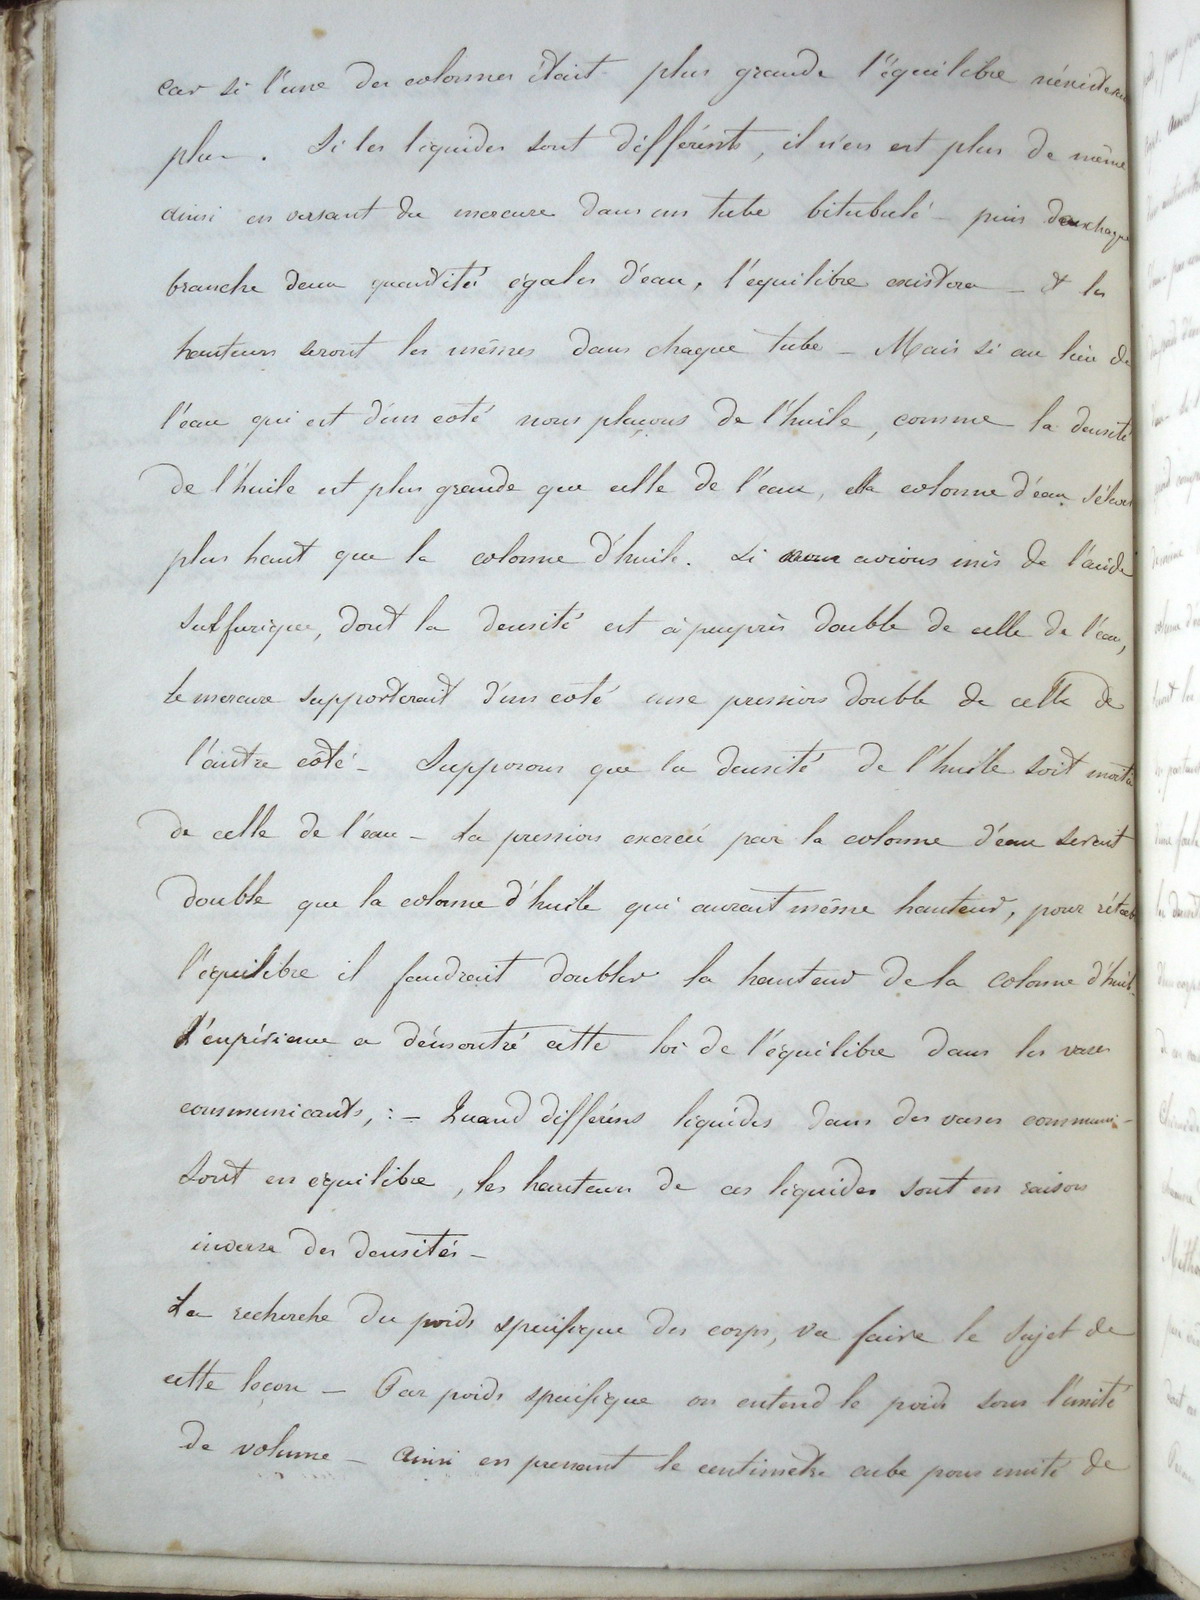 car si l'une des colonnes était plus grande l'équilibre n'existerai
plus. Si les liquides sont différents, il n'en est plus de même
ainsi en versant du mercure dans un tube bitubulé - puis dans chaque
branche deux quantités égales d'eau, l'équilibre existera - et les
hauteurs seront les mêmes dans chaque tube - Mais si au lieu de
l'eau qui est d'un coté nous plaçons de l'huile, comme la densité
de l'huile est plus grande que celle de l'eau, la colonne d'eau s'élève
plus haut que la colonne d'huile. Si nous avions mis de l'acide
sulfurique, dont la densité est à peu près double de celle de l'eau,
le mercure supporterait d'un côté une pression double de celle de
l'autre côté - Supposons que la densité de l'huile soit moitié
de celle de l'eau - La pression exercée par la colonne d'eau serait
double que la colonne d'huile qui aurait même hauteur, pour rétab
l'équilibre il faudrait doubler la hauteur de la colonne d'huile.
L'expérience a démontré cette loi de l'équilibre dans les vases
communicants, : - Quand différens liquides dans des vases communi-
sont en équilibre, les hauteurs de ces liquides sont en raison
inverse des densités -
La recherche du poids spécifique des corps, va faire le sujet de
cette leçon - Par poids spécifique on entend le poids sous l'unité
de volume - Ainsi en prenant le centimètre cube pour unité de